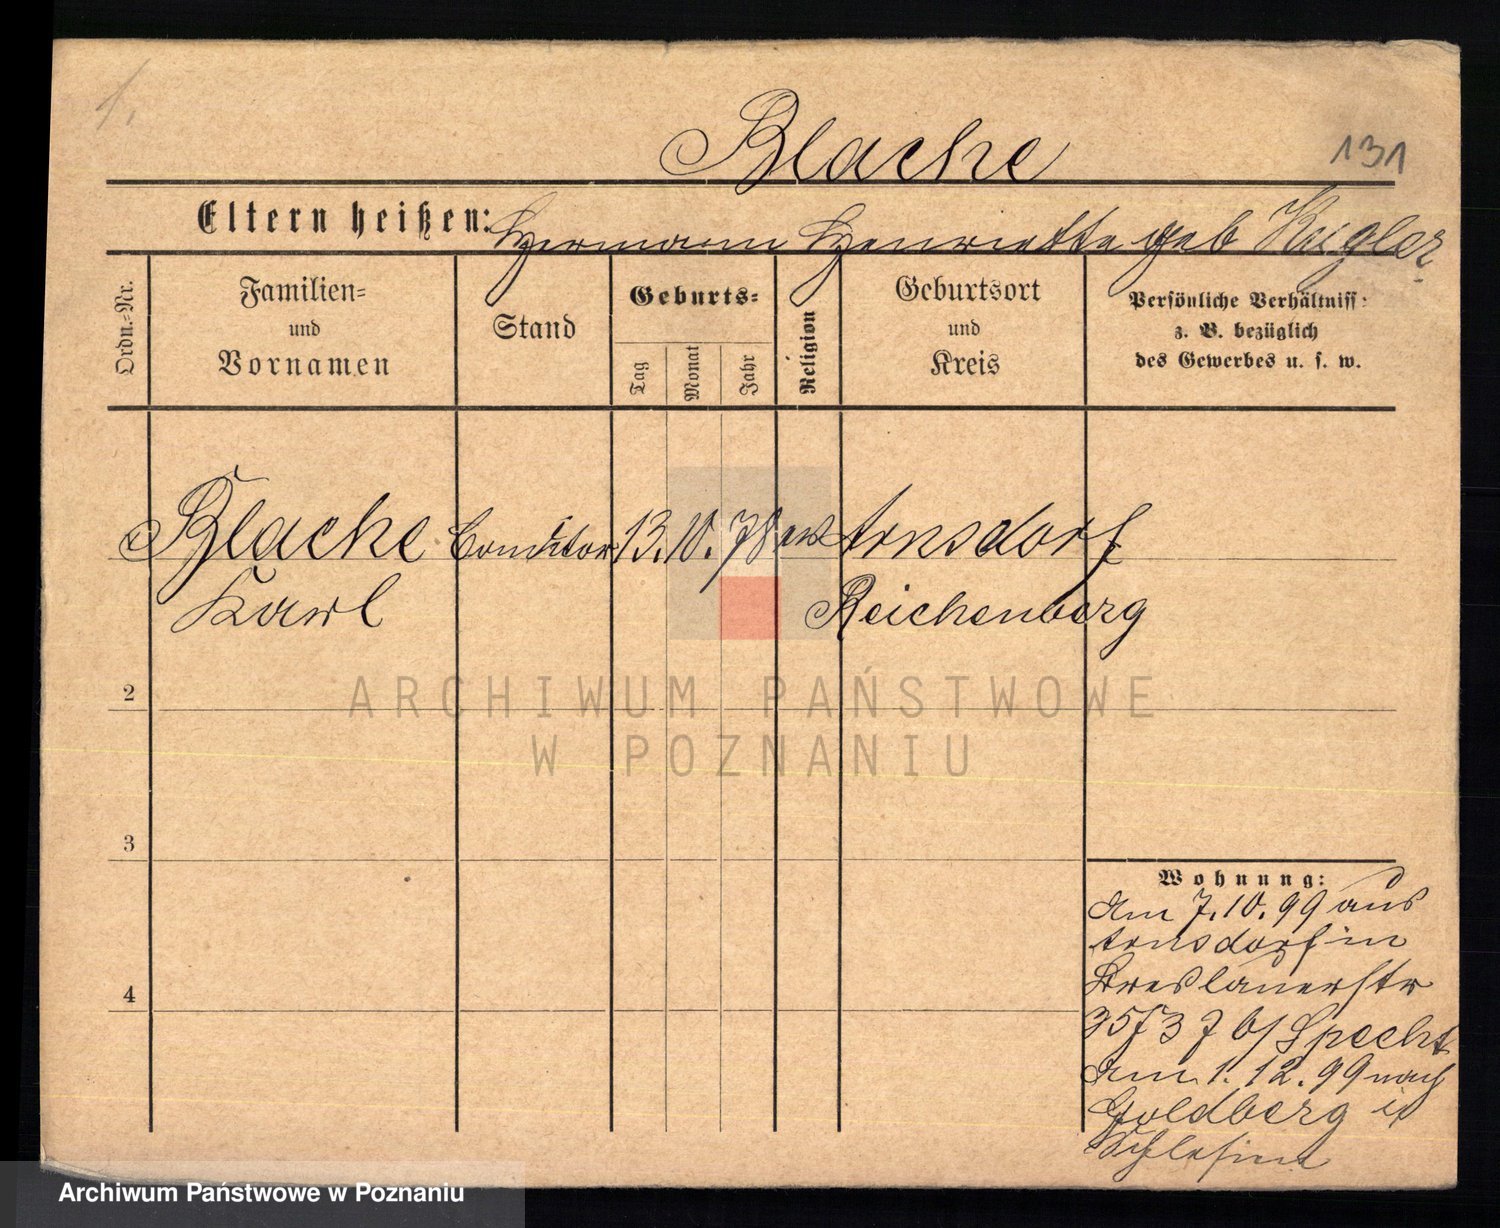 1.
Blache
131
Eltern heißen: Hermann Henriette geb Kugler
Ordn.-Nr.
Familien-
und
Vornamen
Stand
Geburts-
Tag
Monat
Jahr
Religion
Geburtsort
und
Kreis
Persönliche Verhältniss:
z. B. bezüglich
des Gewerbes u. s. w.
Blache Conditor 13. 10. 78 ev Arnsdorf
Karl Reichenberg
2
ARCHIWUM PAŃSTWOWE
W POZNANIU
3
Wohnung:
Am 7.10.99 aus
Arnsdorf in
Breslauerstr
35/37 b/ Specht
Am 1.12.99 nach
Goldberg i/
Schlesien
4
Archiwum Państwowe w Poznaniu